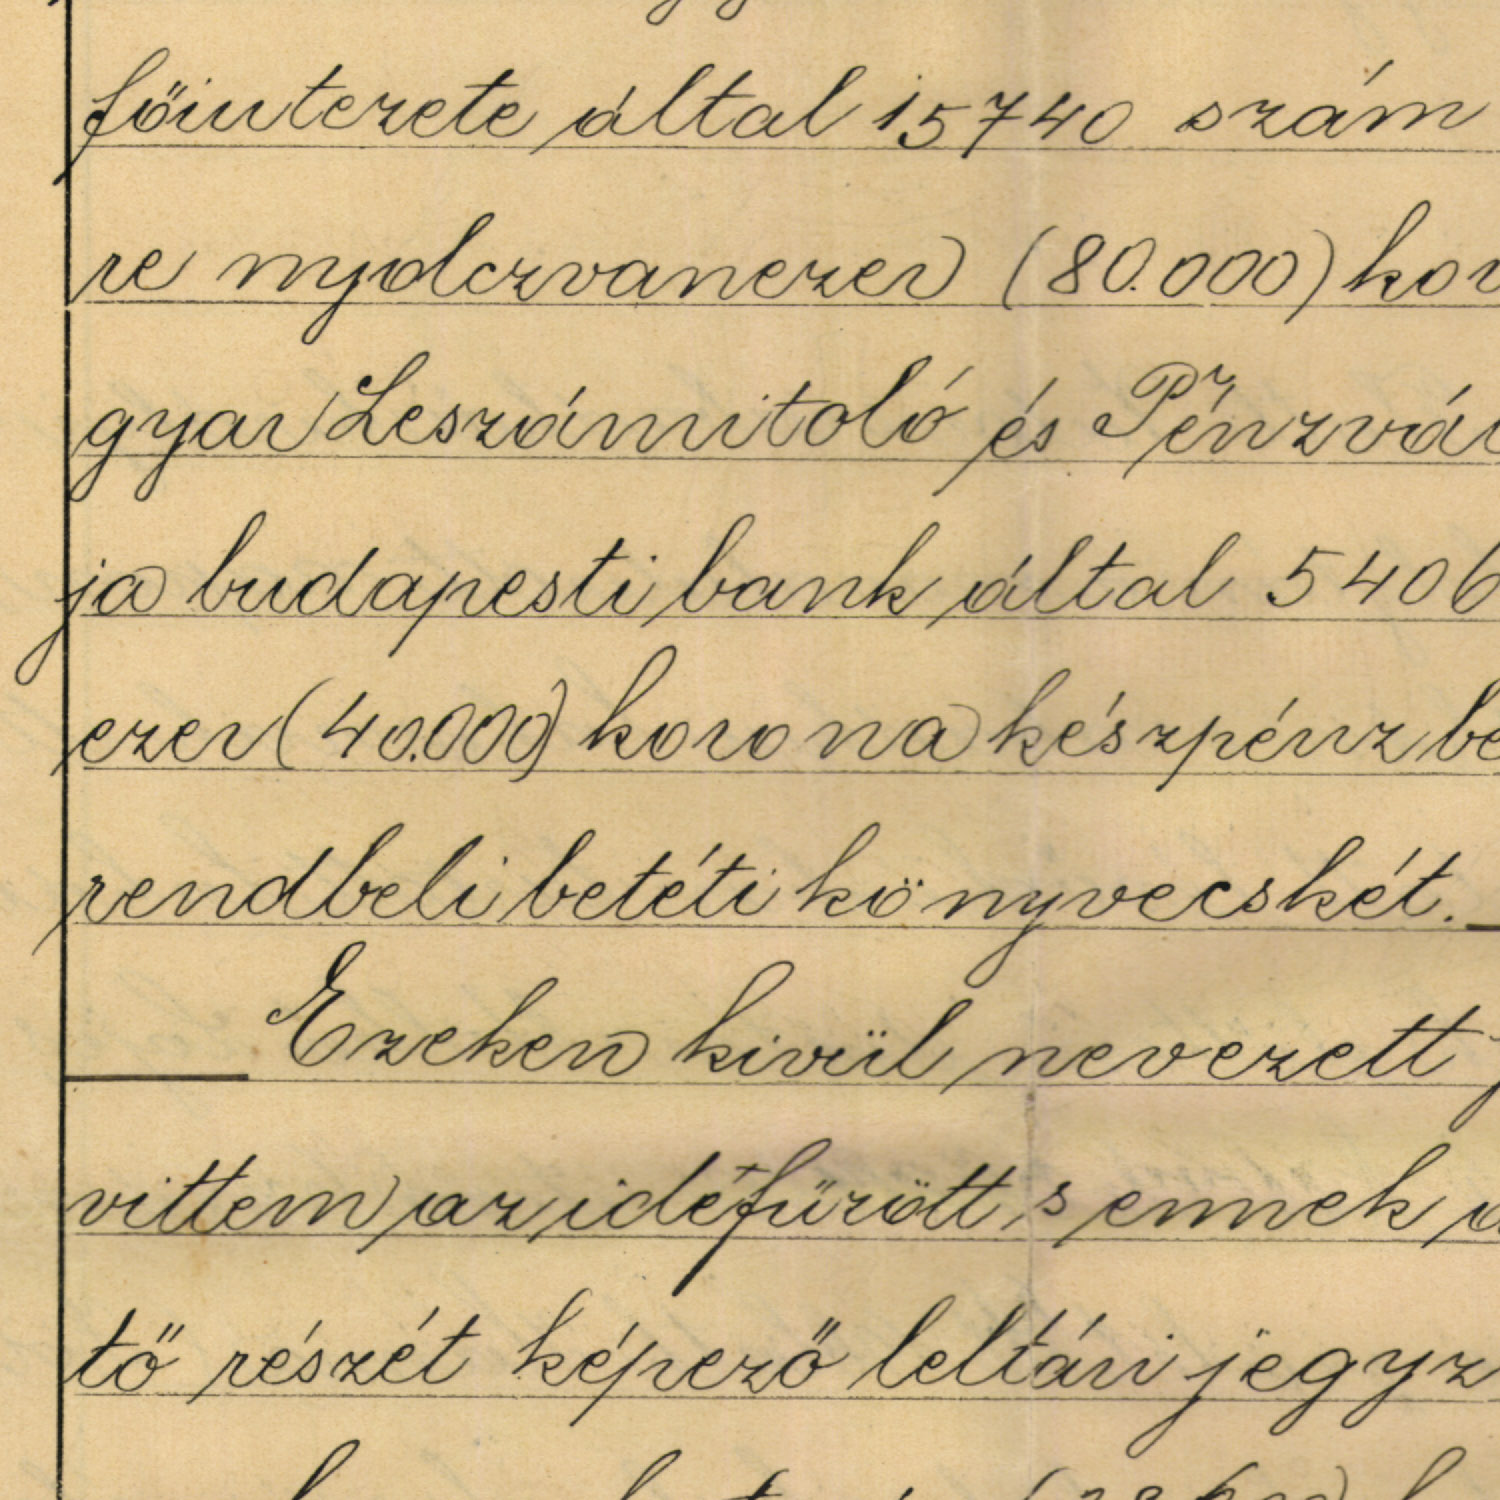 főintezete által 15740 szám
re nyolczvanezer (80.000) kor
gyar Leszámitoló és Pénzvál
ja budapesti bank által 5406
ezer (40.000) korona készpénz be
rendbeli betéti könyvecskét.
Ezeken kivül nevezett
vittem az idefűzött s ennek
tő részét képező leltári jegyz